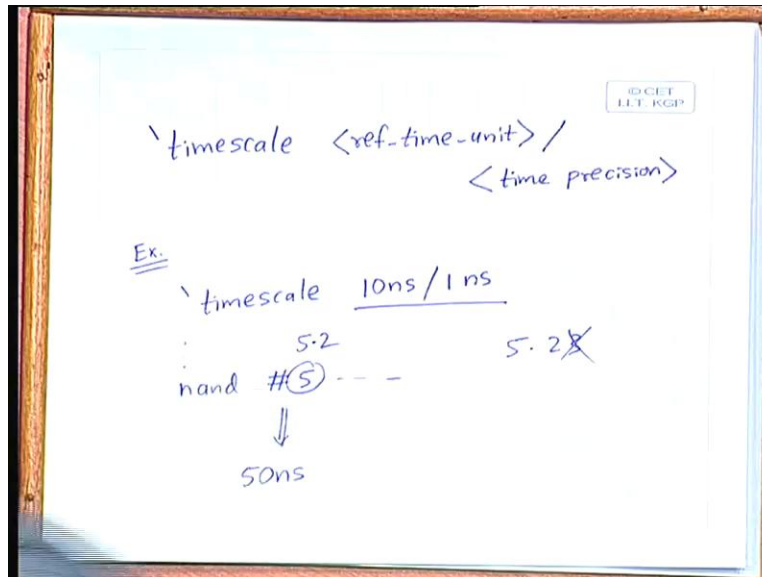 © CET
I.I.T. KGP
`timescale <ref-time-unit> /
<time precision>
Ex.
`timescale 10ns/1 ns
5.2
5.2
nand #5 - - -
50ns